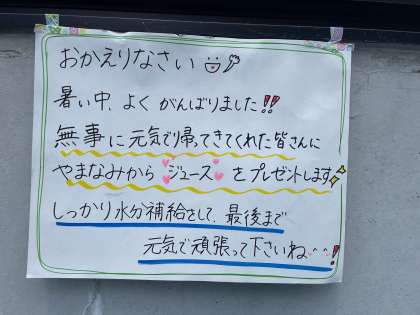 おかえりなさい
暑い中、よく がんばりました!!
無事に元気で帰ってきてくれた皆さんに
やまなみから ジュース をプレゼントします
しっかり水分補給をして、最後まで
元気で頑張って下さいね^^!